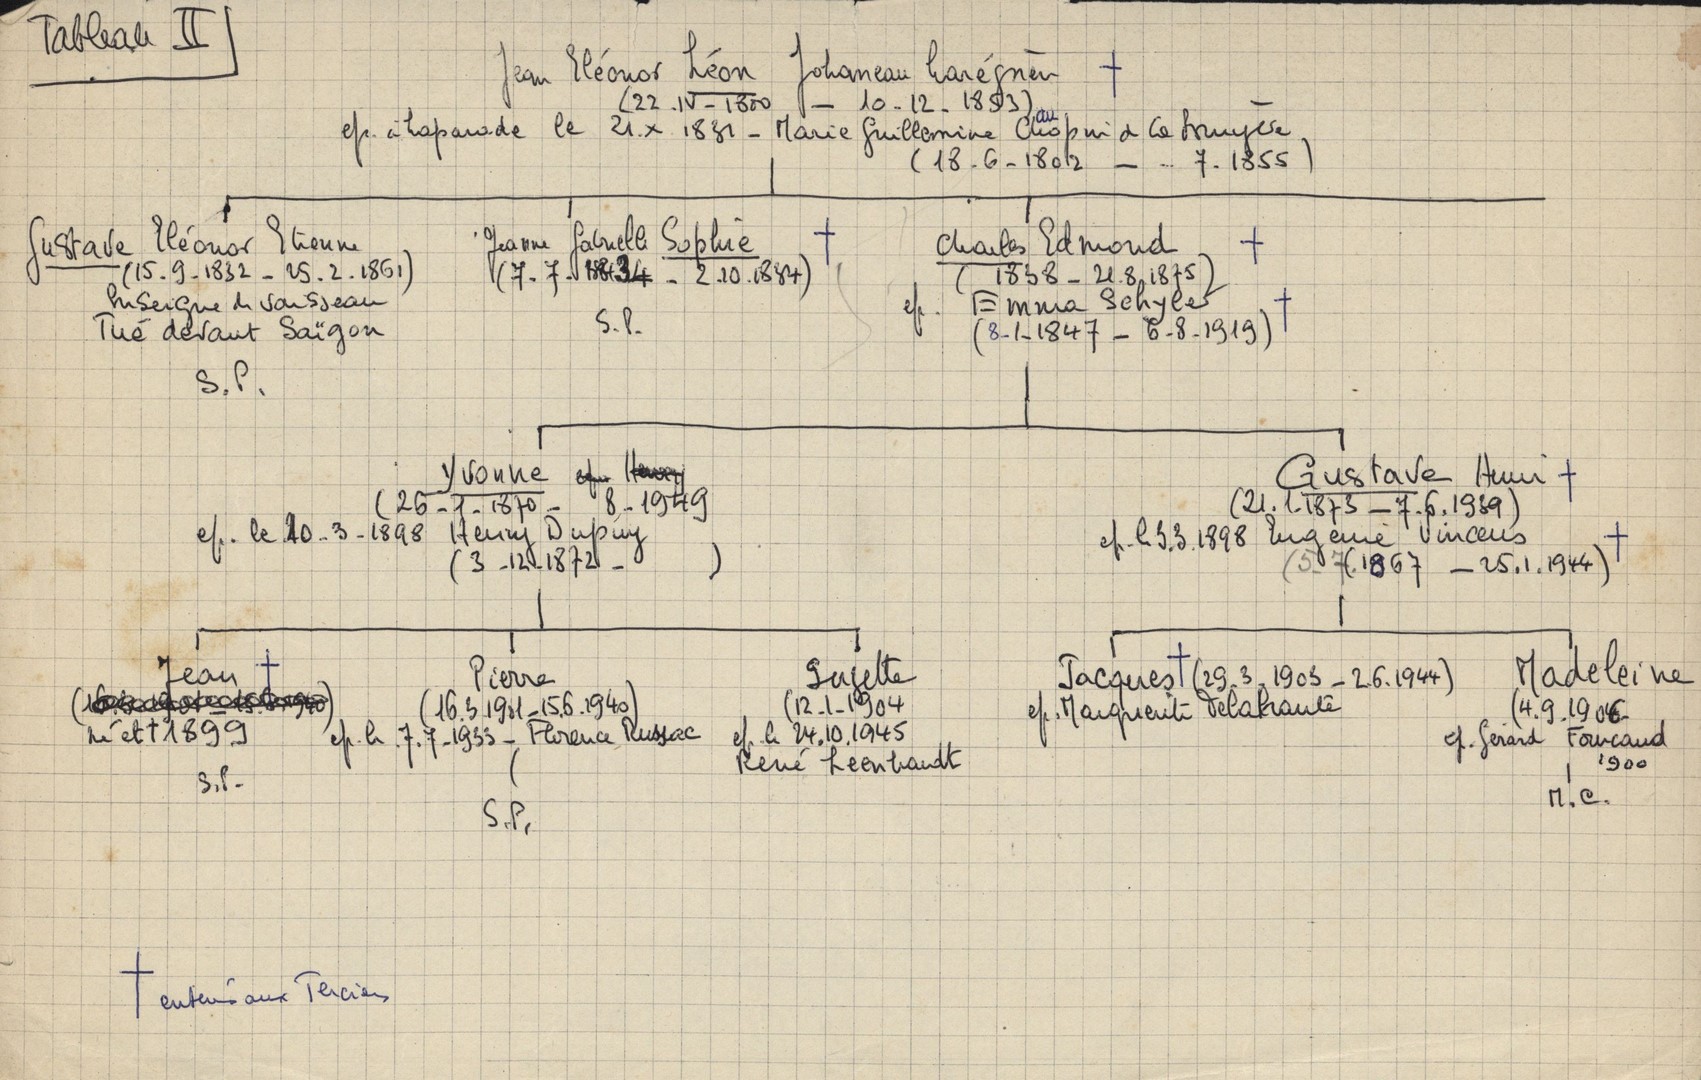 Tableau II
Jean Eléonor Léon Johaneau Larégnère †
(22.IV-1800 - 10-12-1853)
ep. à Laparade le 21.X 1831 - Marie Guillemine Chaupin de la Bruyère
(18-6-1802 - .. 7.1855)
Gustave Eléonor Etienne
(15.9.1832 - 25.2.1861)
Enseigne de vaisseau
Tué devant Saïgon
S.P.
Jeanne Gabrielle Sophie †
(7-7-1834 - 2.10.1884)
S.P.
Charles Edmond †
( 1838 - 21.8.1875)
ep. Emma Schyler †
(8-1-1847 - 6-8-1919)
Yvonne
(26-7-1870 - 8-1949
ep. le 10-3-1898 Henry Dupuy
(3-12-1872 - )
Gustave Henri †
(21.1.1873 - 7.6.1939)
ep. le 3.3.1898 Eugénie Vincens †
(5-7(.1867 - 25.1.1944)
Jean †
né et † 1899
S.P.
Pierre
(16.3.1901-15.6.1940)
ep. le 7.7-1933 - Florence Russac
(
S.P.
Suzette
(12-1-1904
ep. le 24.10.1945
René Leenhardt
Jacques † (29.3.1903 - 2.6.1944)
ep. Marguerite Delahante
Madeleine
(4.9.1906
ep. Gérard Fourcaud
1900
M.C.
† enterrés aux Terciers